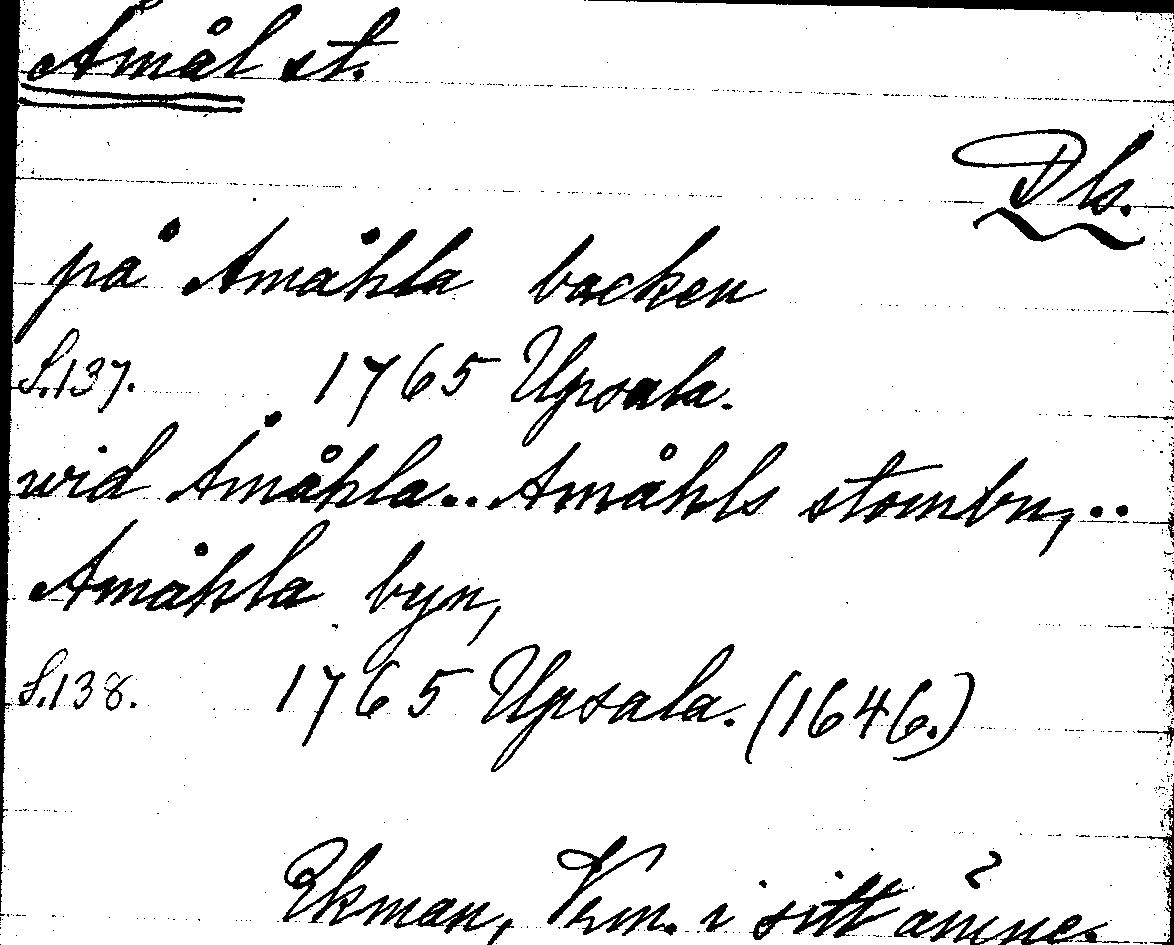 Åmål st.
Dls.
på Åmåhla backen
S.137. 1765 Upsala.
wid Åmåhla.. Åmåhls stombn, ..
Åmåhla byn,
S.138. 1765 Upsala. (1646.)
Ekman, Vrm. i sitt ämne.